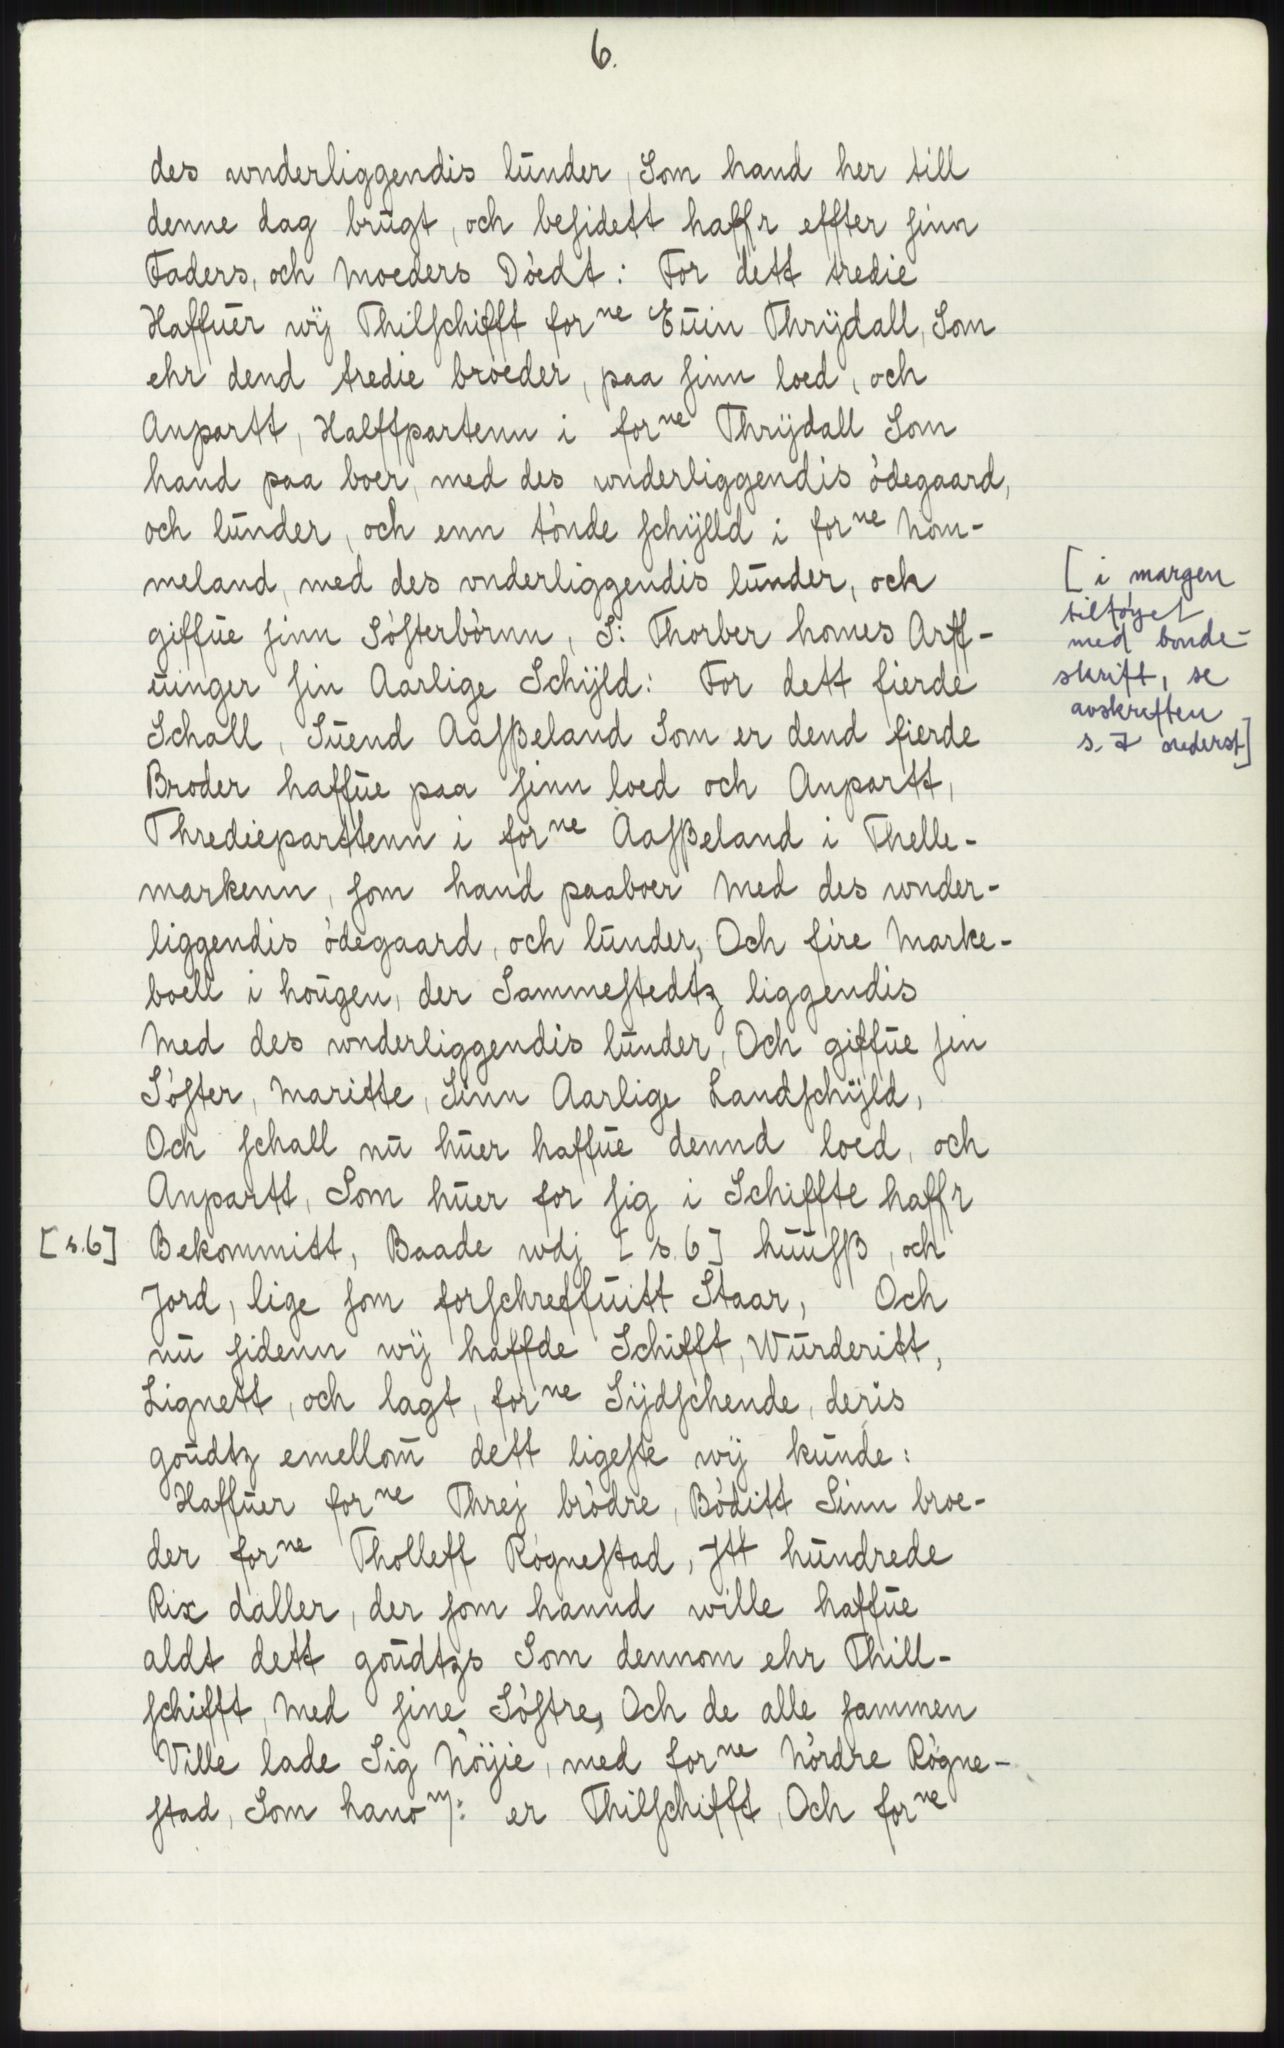 6.
des wnderliggendis lŭnder, Som hand her till
denne dag brŭgt, och beſidett haffr effter ſinn
Faders, och Moeders Dòedt: For dett tredie
Haffŭer wÿ Thilſchifft forne Eŭin Thrÿdall, Som
ehr dend tredie broeder, paa ſinn loed, och
Anpartt, Halffpartenn i forne Thrÿdall Som
hand paa boer, med des wnderliggendis òdegaard,
och lŭnder, och enn tònde ſchÿlld i forne Nom-
meland, med des vnderliggendis lŭnder, och
giffŭe ſinn Sòſterbòrnn, S: Thorber homes Arff-
ŭinger ſin Aarlige Schÿld: For dett fierde
Schall, Sŭend Aaſßeland Som er dend fierde
Broder haffŭe paa ſinn loed och Anpartt,
Thredieparttenn i forne Aaſßeland i Thelle-
markenn, ſom hand paaboer Med des wnder-
liggendis òdegaard, och lŭnder, Och fire Marke-
boell i hoŭgen, der Sammeſtedtz liggendis
Med des wnderliggendis lŭnder, Och giffŭe ſin
Sòſter, Maritte, Sinn Aarlige Landſchÿld,
Och ſchall nŭ hŭer haffŭe dennd loed, och
Anpartt, Som hŭer for ſig i Schiffte haffr
[s.6] Bekommitt, Baade wdj [s.6] hŭŭſß, och
Jord, lige ſom forſchreffŭitt Staar, Och
nŭ ſidenn wÿ haffde Schifft, Wŭrderitt,
Lignett, och lagt, forne Sÿdſchende, deris
goŭdtz emellom̄ dett ligeſte wÿ kŭnde:
Haffŭer forne Threj bròdre, Bòditt Sinn broe-
der forne Tholleff Rògneſtad, Jtt hŭndrede
Rix daller, der ſom hannd wille haffŭe
aldt dett goŭdtzs Som dennom ehr Thill-
ſchifft, Med ſine Sòſtre, Och de alle ſammen
Ville lade Sig Nòÿie, med forne Nòrdre Rògne-
ſtad, Som hanom: er Thilſchifft, Och forne
[i margen
tilføyet
med bonde-
skrift, se
avskriften
s. 7 nederst]